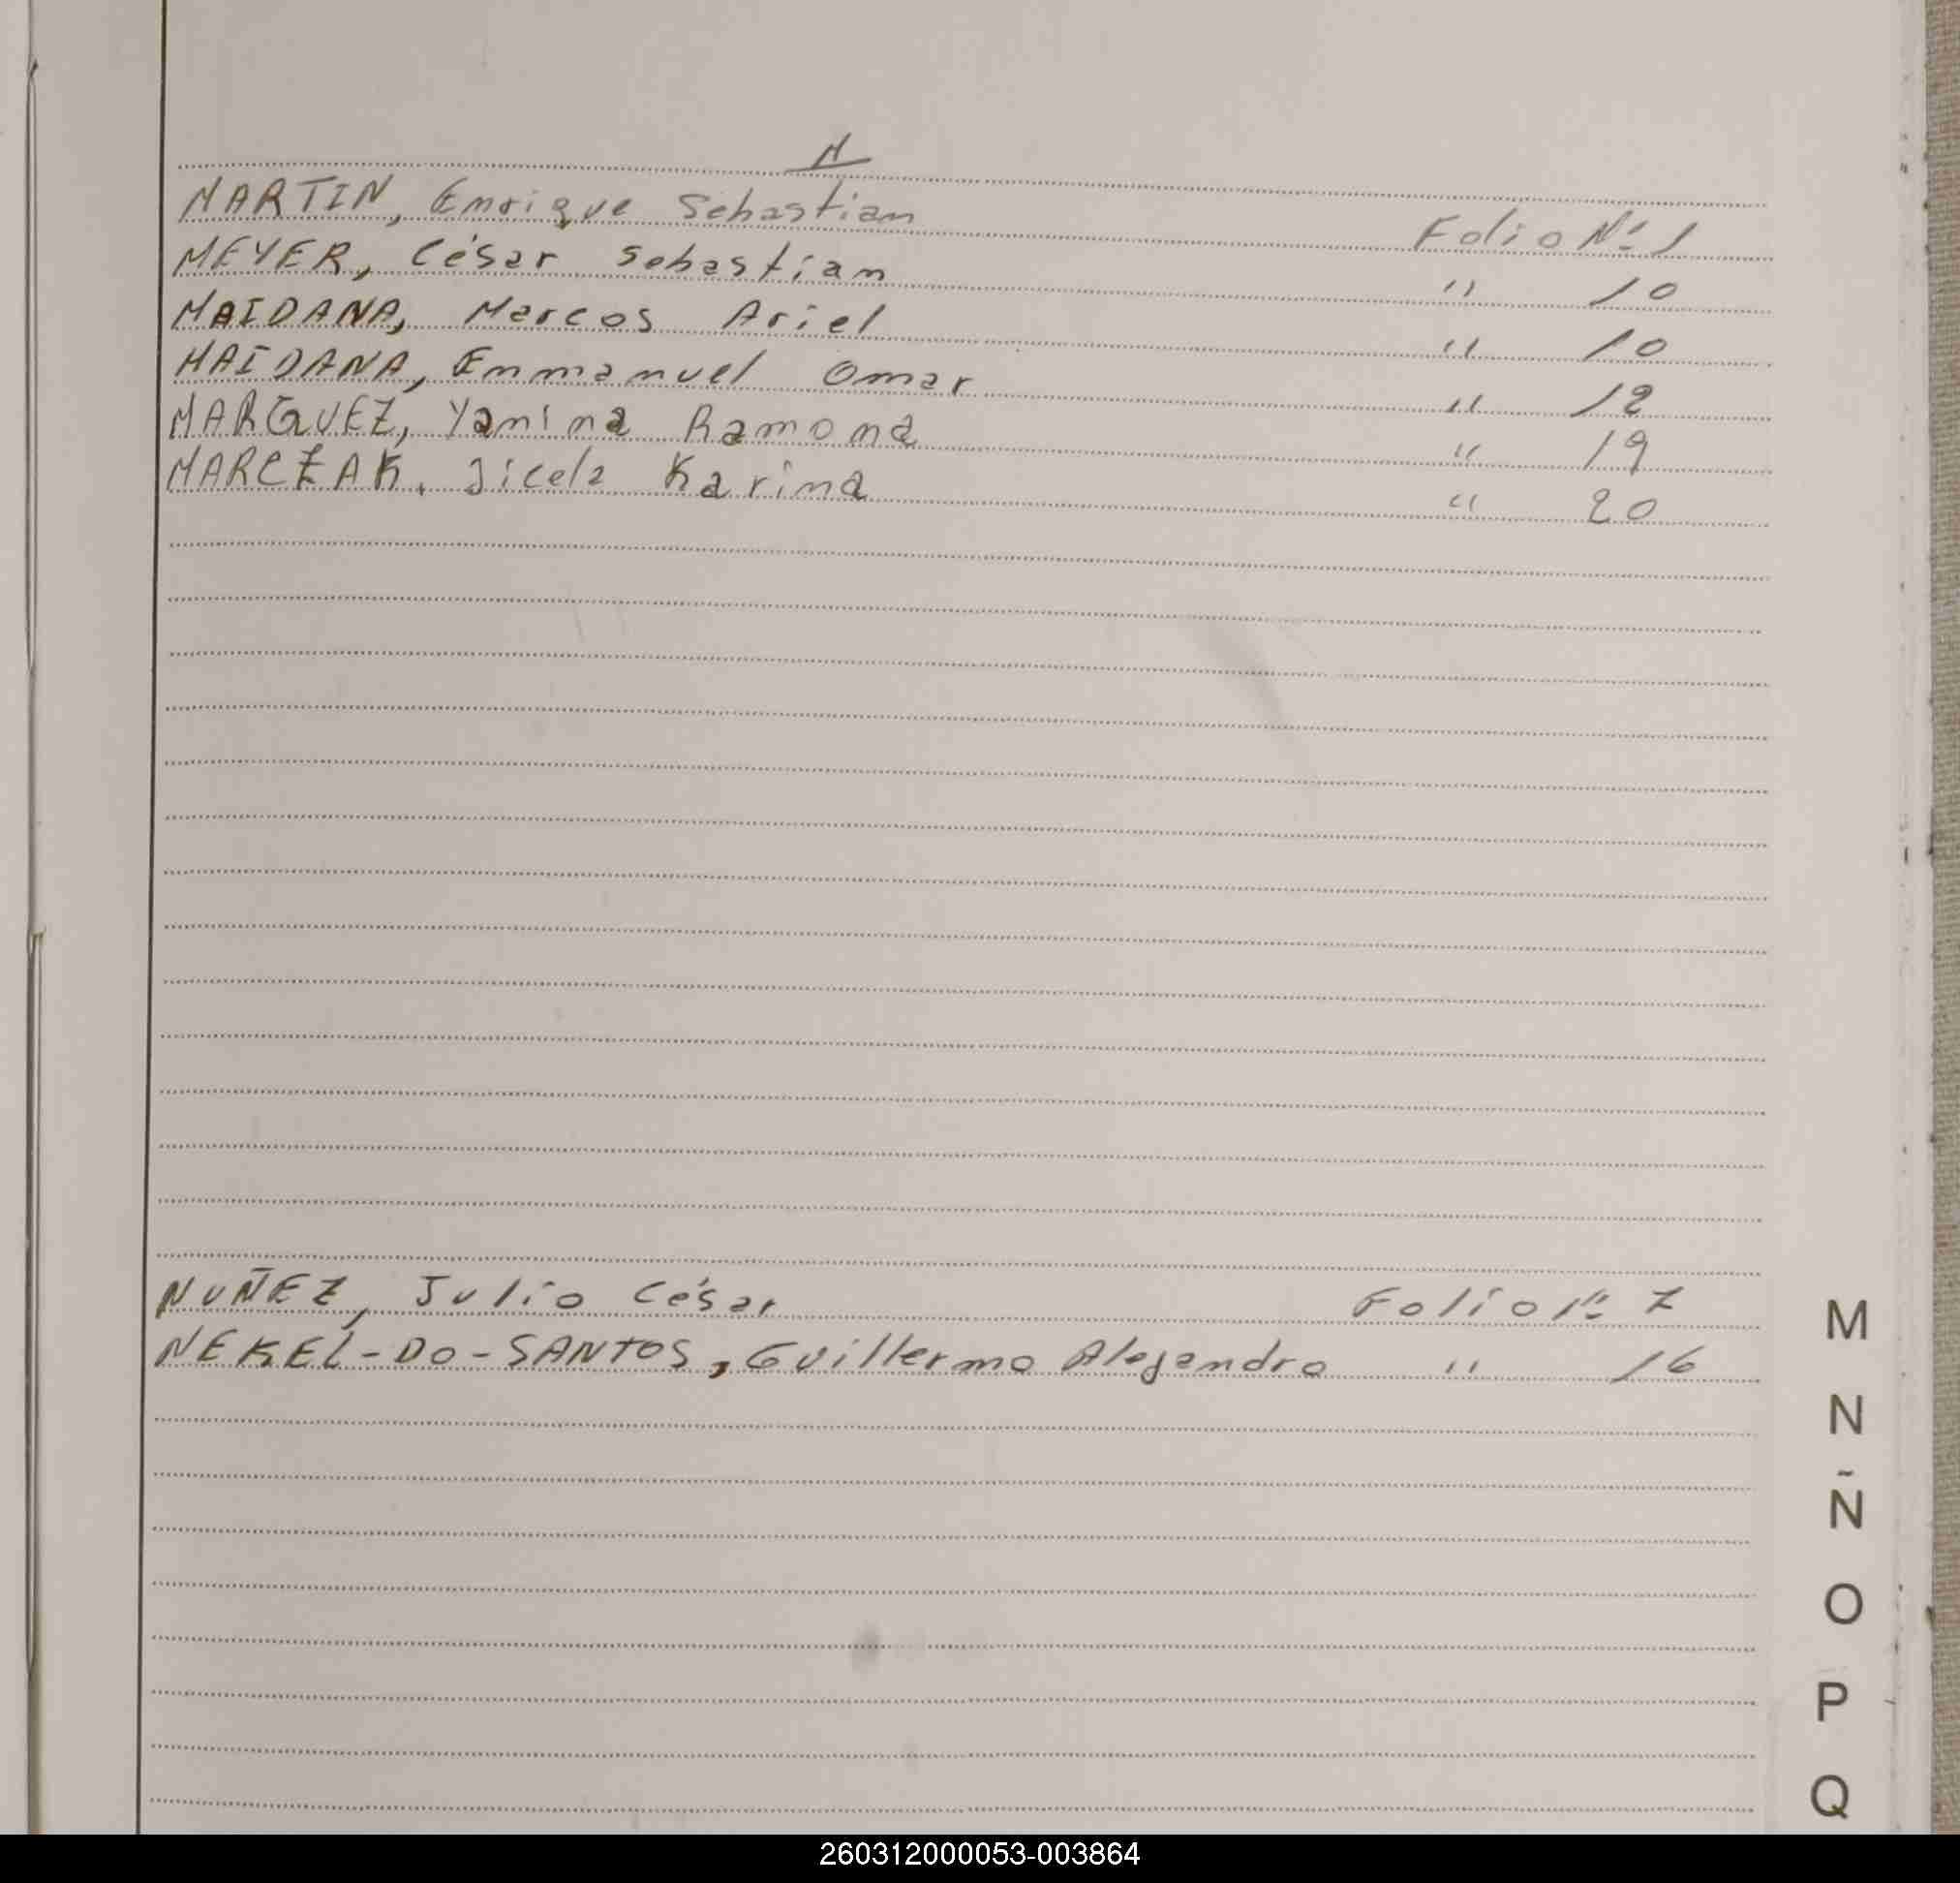 M
MARTIN, Enrique Sebastian Folio Nº 1
MEYER, César Sebastian " 10
MAIDANA, Marcos Ariel " 10
MAIDANA, Emmanuel Omar " 12
MARQUEZ, Yanina Ramona " 19
MARCZAK, Jicela Karina " 20
NUÑEZ, Julio César Folio Nº 7
NEKEL-DO-SANTOS, Guillermo Alejandro " 16
M
N
Ñ
O
P
Q
260312000053-003864